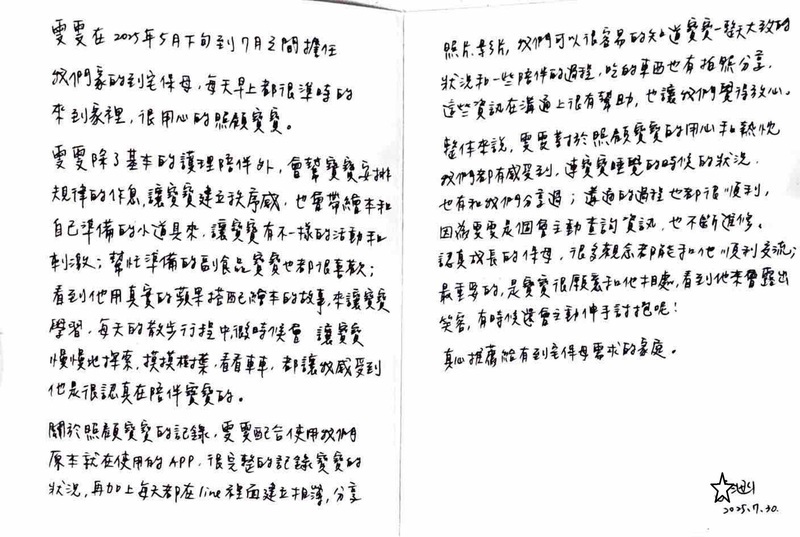 雯雯在2025年5月下旬到7月之間擔任
我們家的到宅保母，每天早上都很準時的
來到家裡，很用心的照顧寶寶。
雯雯除了基本的護理陪伴外，會幫寶寶安排
規律的作息，讓寶寶建立秩序感，也會帶繪本和
自己準備的小道具來，讓寶寶有不一樣的活動和
刺激；幫忙準備的副食品寶寶也都很喜歡；
看到他用真實的蘋果搭配繪本的故事，來讓寶寶
學習，每天的散步行程中，微時候會 讓寶寶
慢慢地探索，摸摸樹葉，看看車車，都讓我感受到
他是很認真在陪伴寶寶的。
關於照顧寶寶的記錄，雯雯配合使用我們
原本就在使用的APP，很完整的記錄寶寶的
狀況，再加上每天都在line裡面建立相簿，分享
照片、影片，我們可以很容易的知道寶寶一整天大致的
狀況和一些陪伴的過程，吃的東西也有拍照分享，
這些資訊在溝通上很有幫助，也讓我們覺得放心。
整體來說，雯雯對於照顧寶寶的用心和熱忱
我們都有感受到，連寶寶睡覺的時候的狀況，
也有和我們分享過；溝通的過程也都很順利，
因為雯雯是個會主動查詢資訊，也不斷進修、
認真成長的保母，很多觀念都能和他順利交流；
最重要的，是寶寶很願意和他相處，看到他來會露出
笑容，有時候還會主動伸手討抱呢！
真心推薦給有到宅保母需求的家庭。
2025.7.30.